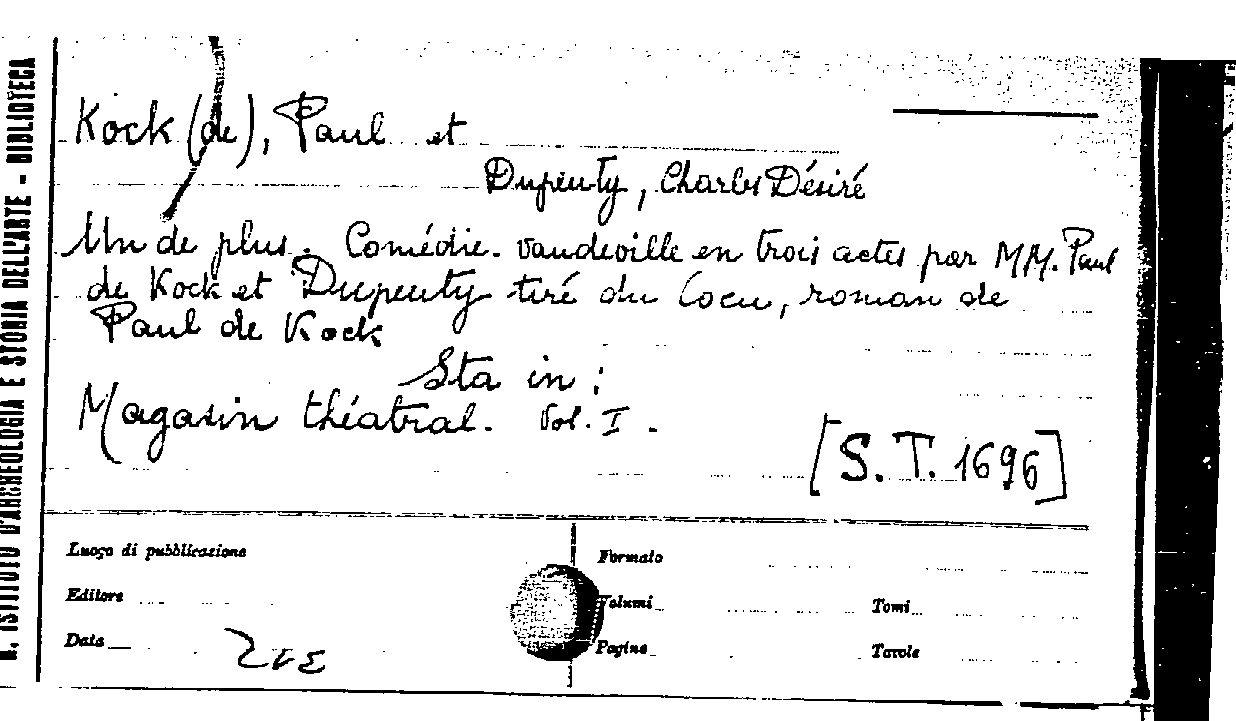 R. ISTITUTO D'ARCHEOLOGIA E STORIA DELL'ARTE - BIBLIOTECA
Kock (de), Paul et
Dupeuty, Charles Désiré
Un de plus. Comédie-vaudeville en trois actes par MM. Paul
de Kock et Dupeuty tiré du Cocu, roman de
Paul de Kock
Sta in:
Magasin théatral. Vol. I.
[S.T. 1696]
Luogo di pubblicazione
Formato
Editore
Volumi
Tomi
Data
Pagine
Tavole